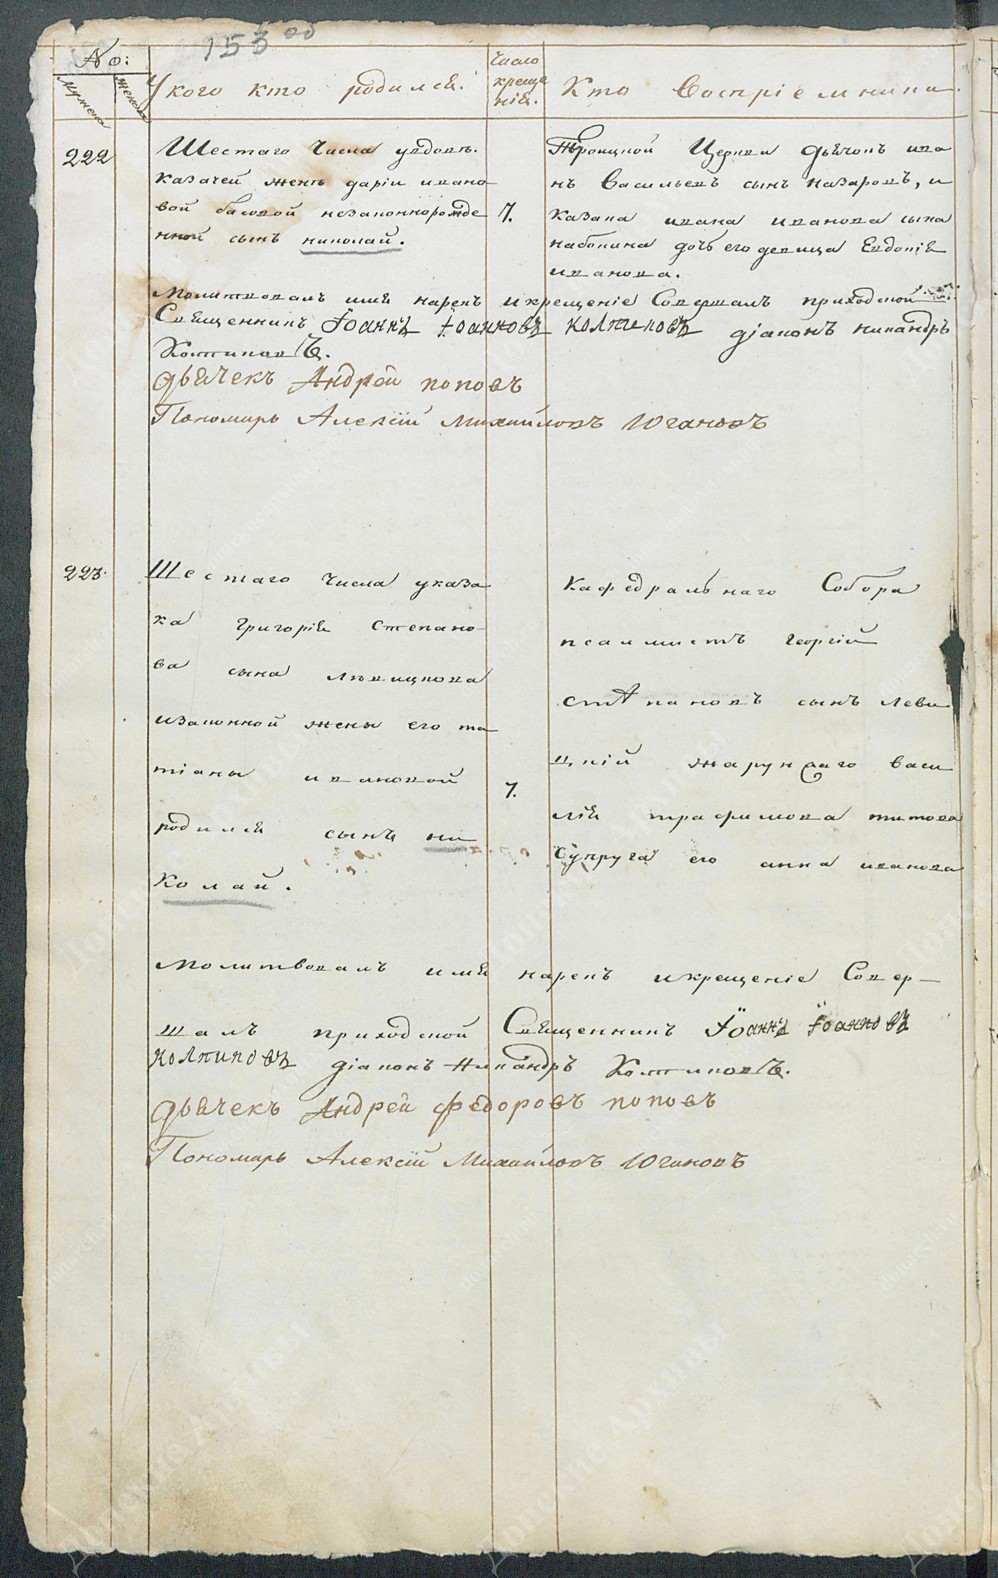 153 об
No:
мужеска
женска
У кого кто родился.
Число
креще
нія.
Кто Воспріемники.
222
Шестаго Числа увдовъ.
казачей женъ даріи ивано
вой басовой незаконнорожде
нной сынъ николай.
7.
Троицкой Церкви дьячокъ ива
нъ Васильевъ сынъ назаровъ, и
казака ивана иванова сына
набокина дочь его девица Евдокія
иванова.
Молитвовалъ имя нарекъ икрещеніе Совершалъ приходской
Священникъ Іоаннъ Іоанновъ колпиковъ діаконъ никандръ
Колпиковъ.
дьячекъ Андрей поповъ
Пономарь Алексій Михайловъ Югановъ
223.
Шестаго Числа указа
ка григорія Степано
ва сына левицкова
изаконной жены его та
тіаны ивановой
родился сынъ ни
колай.
7.
Кафедральнаго Собора
псалмистъ георгій
Стѣпановъ сынъ леви
цкій хорунжаго васи
лія трафимова титова
Супруга его анна иванова
Молитвовалъ имя нарекъ икрещеніе Совер—
шалъ приходской Священникъ Іоаннъ Іоанновъ
колпиковъ діаконъ Никандръ Колпиковъ.
дьячекъ Андрей федоровъ поповъ
Пономарь Алексій Михайловъ Югановъ